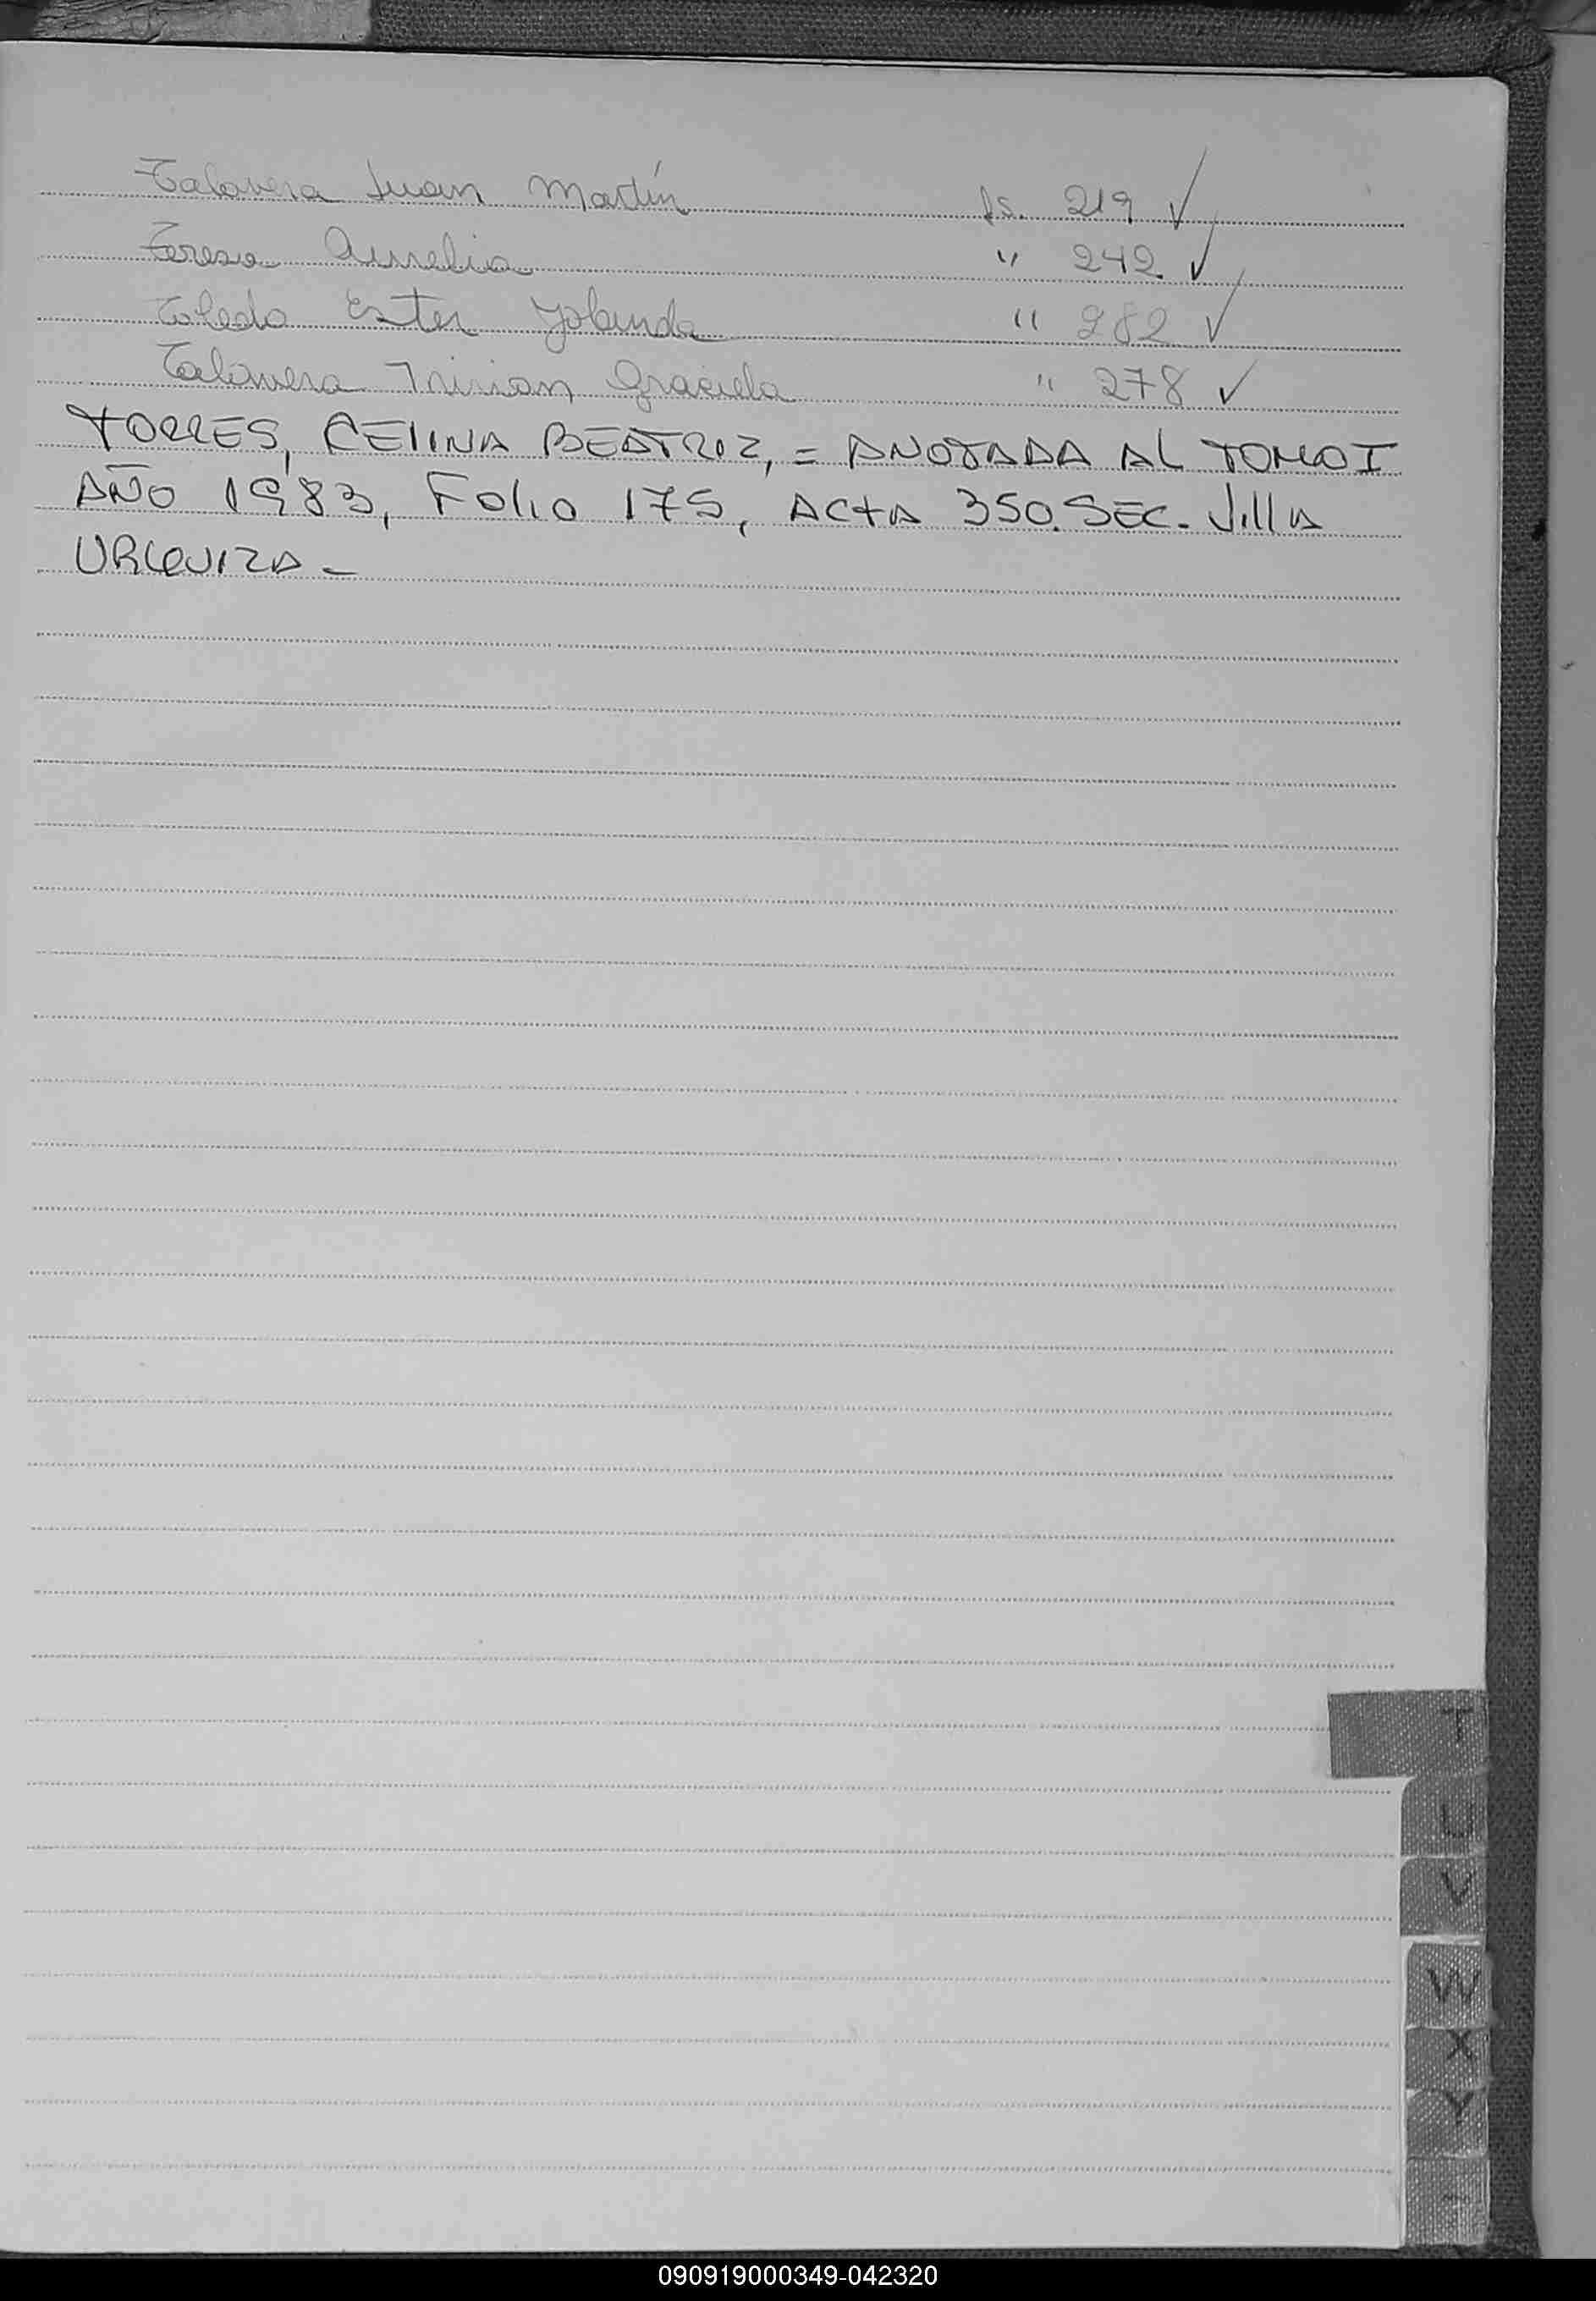 Talavera Juan Martín fs. 219 ✓
Teresa Aurelia " 242 ✓
Toledo Ester Yolanda " 282 ✓
Talavera Mirian Graciela " 278 ✓
TORRES, CELINA BEATRIZ, = ANOTADA AL TOMO I
AÑO 1983, Folio 175, ACTA 350. SEC. Villa
URQUIZA -
T
U
V
W
X
Y
090919000349-042320